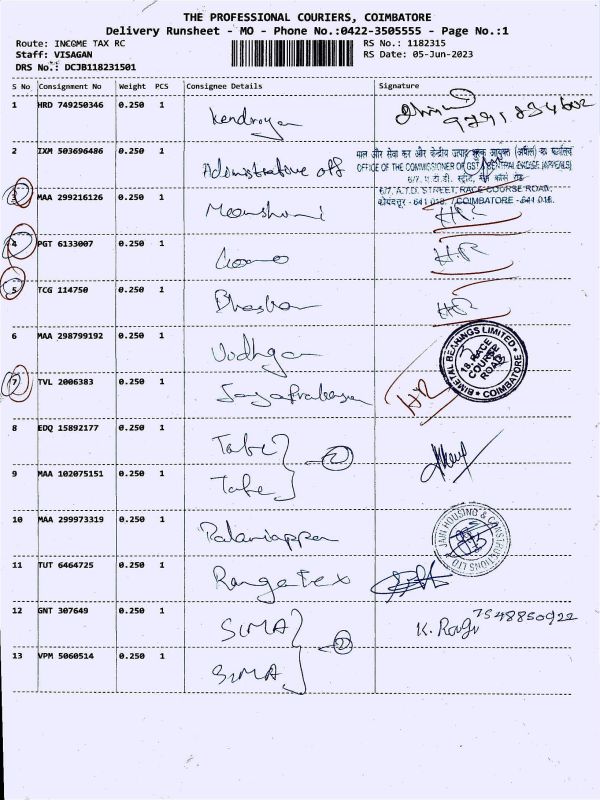 THE PROFESSIONAL COURIERS, COIMBATORE
Delivery Runsheet - MO - Phone No.:0422-3505555 - Page No.:1
Route: INCOME TAX RC
RS No.: 1182315
Staff: VISAGAN
RS Date: 05-Jun-2023
DRS No.: DCJB118231501
S No Consignment No Weight PCS Consignee Details Signature
1 HRD 749250346 0.250 1
2 IXM 503696486 0.250 1 Adminstrative off
माल और सेवा कर और केंद्रीय उत्पाद शुल्क आयुक्त (अपील) का कार्यालय
OFFICE OF THE COMMISSIONER OF GST & CENTRAL EXCISE (APPEALS)
6/7, A.T.D. STREET, RACE COURSE ROAD,
कोयंबत्तूर - 641 018. / COIMBATORE - 641 018.
3 MAA 299216126 0.250 1 Meenshuni HR
4 PGT 6133007 0.250 1 HR
5 TCG 114750 0.250 1 Bhaskar HR
6 MAA 298799192 0.250 1
BIMETAL BEARINGS LIMITED
18, RACE COURSE ROAD
COIMBATORE
7 TVL 2006383 0.250 1 Jayaprakash HR
8 EDQ 15892177 0.250 1 Tabe 2
9 MAA 102075151 0.250 1 Tabe
10 MAA 299973319 0.250 1 Palaniappan
JAIN HOUSING & CONSTRUCTIONS LTD
11 TUT 6464725 0.250 1 Ranga Tex
12 GNT 307649 0.250 1 SIMA 2 K. Ragu 7548850922
13 VPM 5060514 0.250 1 SIMA